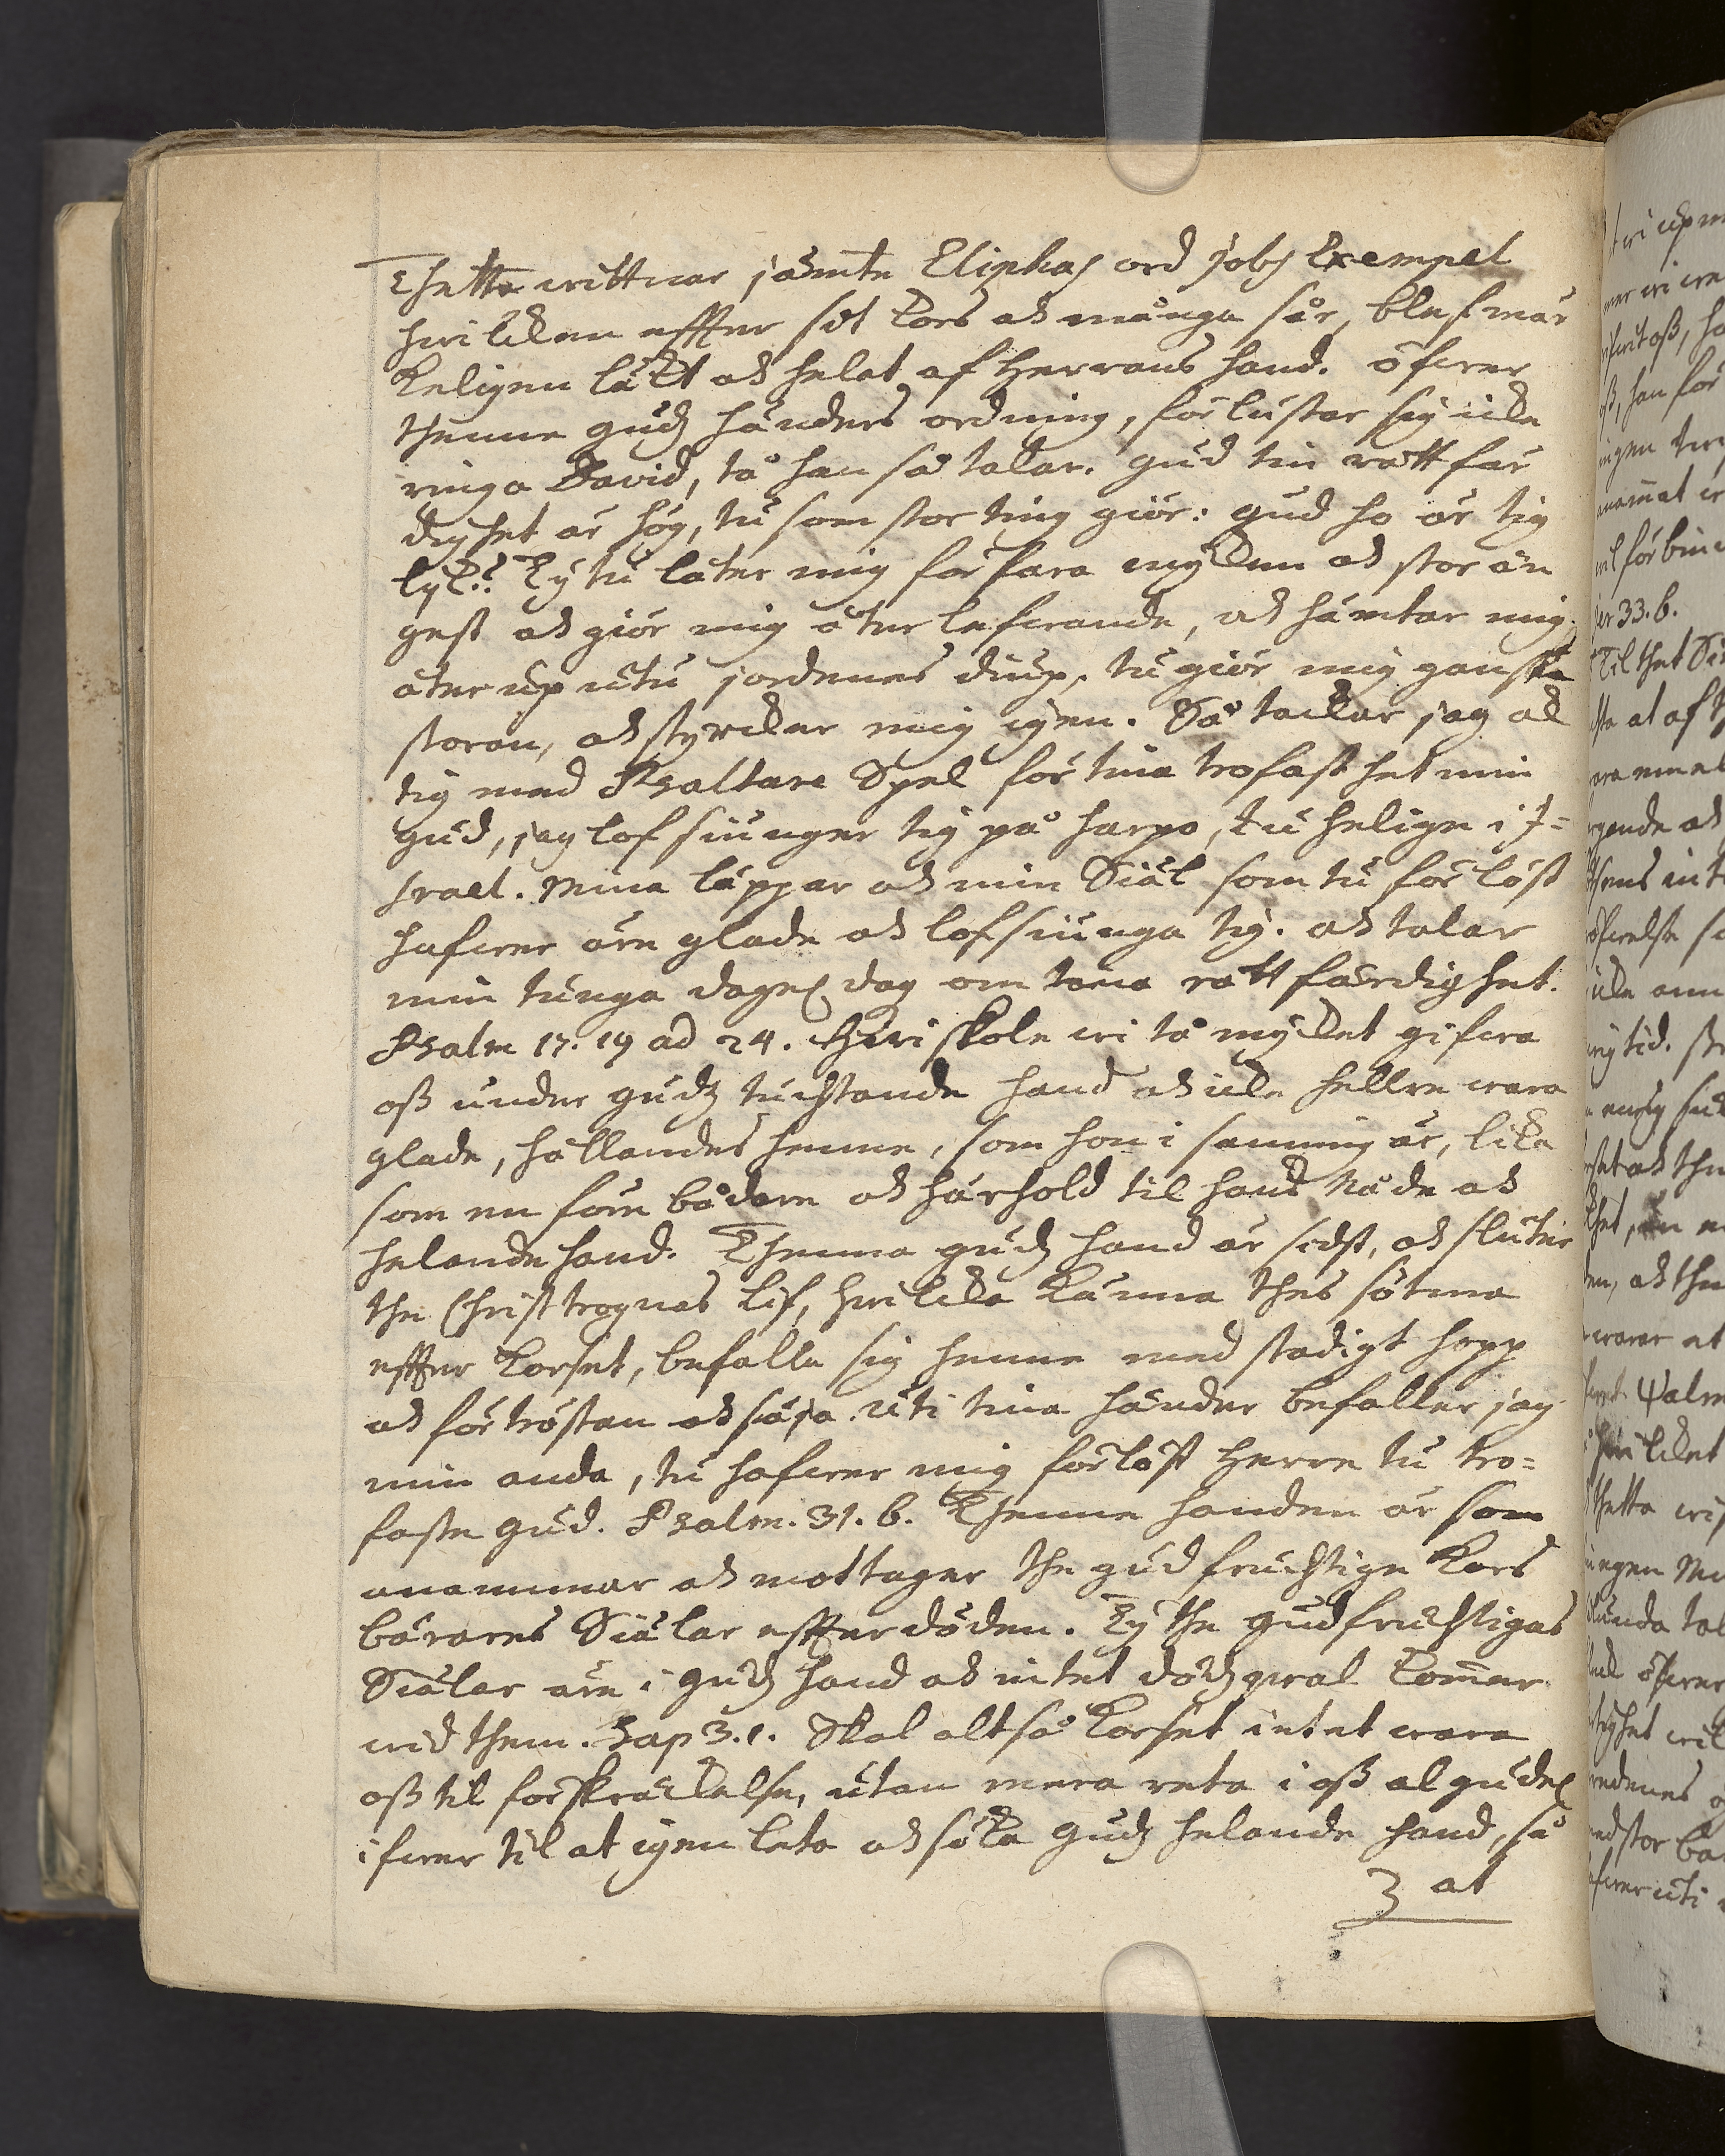 Thetta wittnar jämte Eliphas ord Jobs Exempel
hwilcken effter sit kors ock många sår, blef mär
keligen läkt ock helat af Herrans hand. öfwer
thenne gudz händers ordning, förlustar sig icke
ringa David, tå han så talar. gud tin rättfär
dighet är hög, tu som stor ting giör: gud ho är tig
lijk? Ty tu låter mig förfara mycken ock stor ån
gest ock giör mig åter lefwande, ock hämtar mig
åter up utu jordenes diup, tu giör mig ganska
storan, ock styrcker mig igen. Så tackar jag ock
tig med Psaltare Spel för tina trofasthet min
gud, jag lofsiunger tig på harpo, tu helige i J=
srael. Mina läppar ock min Siäl som tu förlöst
hafwer äre glade ock lofsiunga tig. ock talar
min tunga dagel dag om tina rättfärdighet.
Psalm 17. 19 ad 24. Hwi skole wi tå mycket gifwa
oss under gudz tuchtande hand ock icke hellre wara
glade, hållandes henne, som hon i sanning är, lika
som en före bådare ock härhold til hans Nåde ock
helande hand. Thenna gudz hand är sidst, ock sluter
the Christtrognas lif, hwilcka känna thes sötma
effter korset, befalla sig henne med stadigt hopp
ock förtröstan ock säja. uti tina händer befaller jag
min anda, tu hafwer mig förlöst Herre tu tro=
faste gud. Psalm. 31. 6. Thenne handen är som
anammar ock mottager the gudfruchtige kors
bärares Siälar effter döden. Ty the gudfruchtigas
Siälar äre i gudz hand ock intet dödzqwal kommer
wid them. Sap 3. 1. Skal altså korset intet wara
oss til förskräckelse, utan mera reta i oss al gudel
ifwer til at igenleta ock söka gudz helande hand, så
3 at